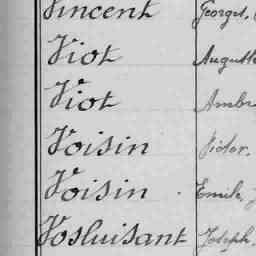 Vincent Georges,
Viot Auguste
Viot Ambr
Voisin Victor.
Voisin Emile,
Vosluisant Joseph,